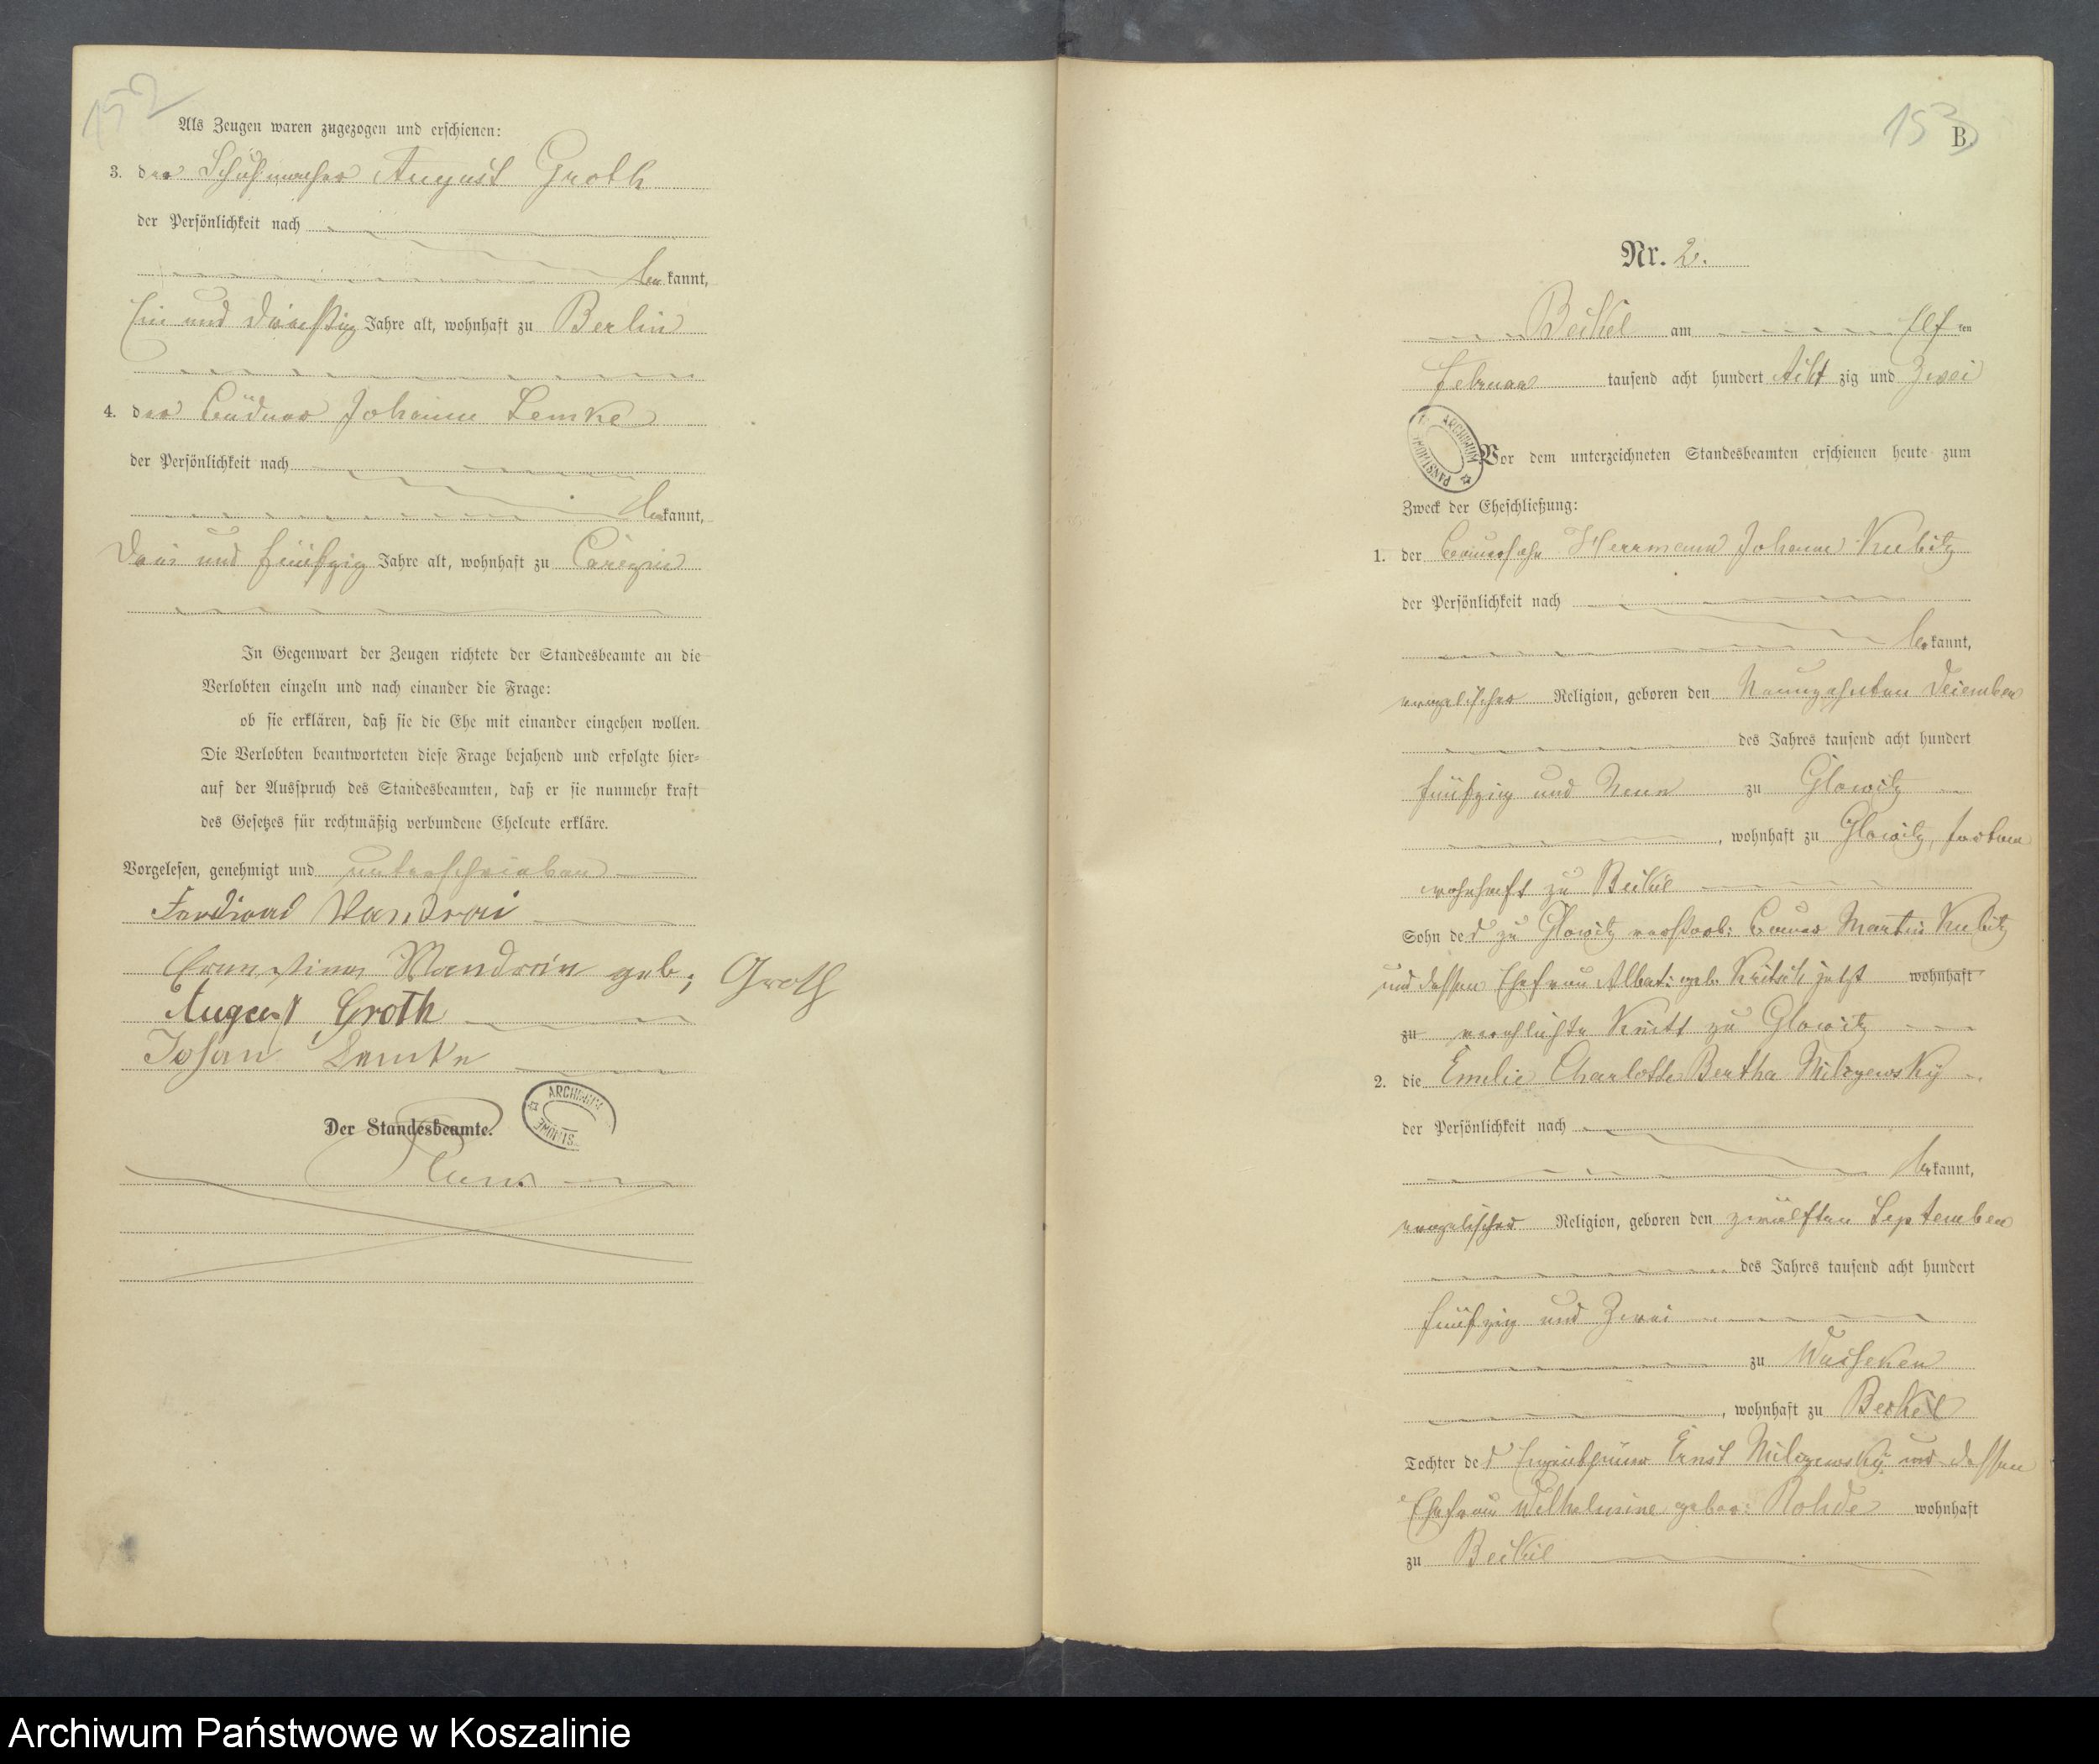 152
Als Zeugen waren zugezogen und erschienen:
3. der Schuhmacher August Groth
der Persönlichkeit nach
bekannt,
Ein und dreißig Jahre alt, wohnhaft zu Berlin
4. der Büdner Johann Lemke
der Persönlichkeit nach
bekannt,
Drei und fünfzig Jahre alt, wohnhaft zu
In Gegenwart der Zeugen richtete der Standesbeamte an die
Verlobten einzeln und nach einander die Frage:
ob sie erklären, daß sie die Ehe mit einander eingehen wollen.
Die Verlobten beantworteten diese Frage bejahend und erfolgte hier-
auf der Ausspruch des Standesbeamten, daß er sie nunmehr kraft
des Gesetzes für rechtmäßig verbundene Eheleute erkläre.
Vorgelesen, genehmigt und unterschrieben
Ferdinand Wandrei
Ernestine Wandrein geb; Groth
August Groth
Johan Lemke
ARCHIWUM
Der Standesbeamte.
153
B.
Nr. 2.
Beckel am Elften
Februar tausend acht hundert Acht zig und Zwei
ARCHIWUM PAŃSTWOWE
Vor dem unterzeichneten Standesbeamten erschienen heute zum
Zweck der Eheschließung:
1. der Bauersohn Herrmann Johann Kubitz
der Persönlichkeit nach
bekannt,
evangelischer Religion, geboren den Neunzehnten Dezember
des Jahres tausend acht hundert
fünfzig und Neun zu Glowitz
, wohnhaft zu Glowitz,
wohnhaft zu Beckel
Sohn des zu Glowitz verstorb: Bauer Martin Kubitz
und dessen Ehefrau Albert: geb. jetzt wohnhaft
zu verehlichte zu Glowitz
2. die Emilie Charlotte Bertha Milczewsky
der Persönlichkeit nach
bekannt,
evangelischer Religion, geboren den zwölften September
des Jahres tausend acht hundert
fünfzig und Zwei
zu Wusseken
, wohnhaft zu Beckel
Tochter des Ernst Milczewsky und dessen
Ehefrau Wilhelmine gebor: Rohde wohnhaft
zu Beckel
Archiwum Państwowe w Koszalinie